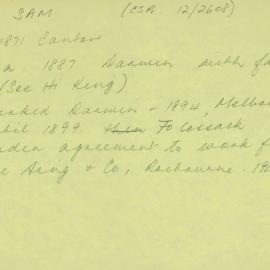 SAM (CSR. 12/2608)
1871 Canton
a. 1887 Darwin with fa
(See Hi King)
Darwin - 1894, Melbo
1899. To Cossack
agreement to work f
& Co, Roebourne. 19